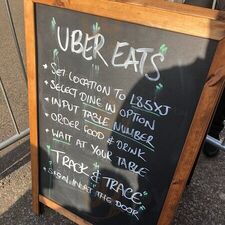 UBER EATS
• SET LOCATION TO L85XJ
• SELECT DINE IN OPTION
• INPUT TABLE NUMBER
• ORDER FOOD & DRINK
• WAIT AT YOUR TABLE
"TRACK & TRACE"
• SIGN IN AT THE DOOR